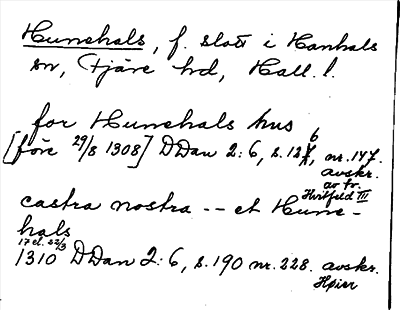 Hunehals, f. slott i Hanhals
sn, Fjäre hd, Hall. l.
for Hunehals hus
[före 29/8 1308] DDan 2: 6, s. 126, nr. 147.
avskr.
av tr.
Hvitfeld III
castra nostra -- et Hune-
hals
17 el. 22/3
1310 DDan 2: 6, s. 190 nr. 228. avskr.